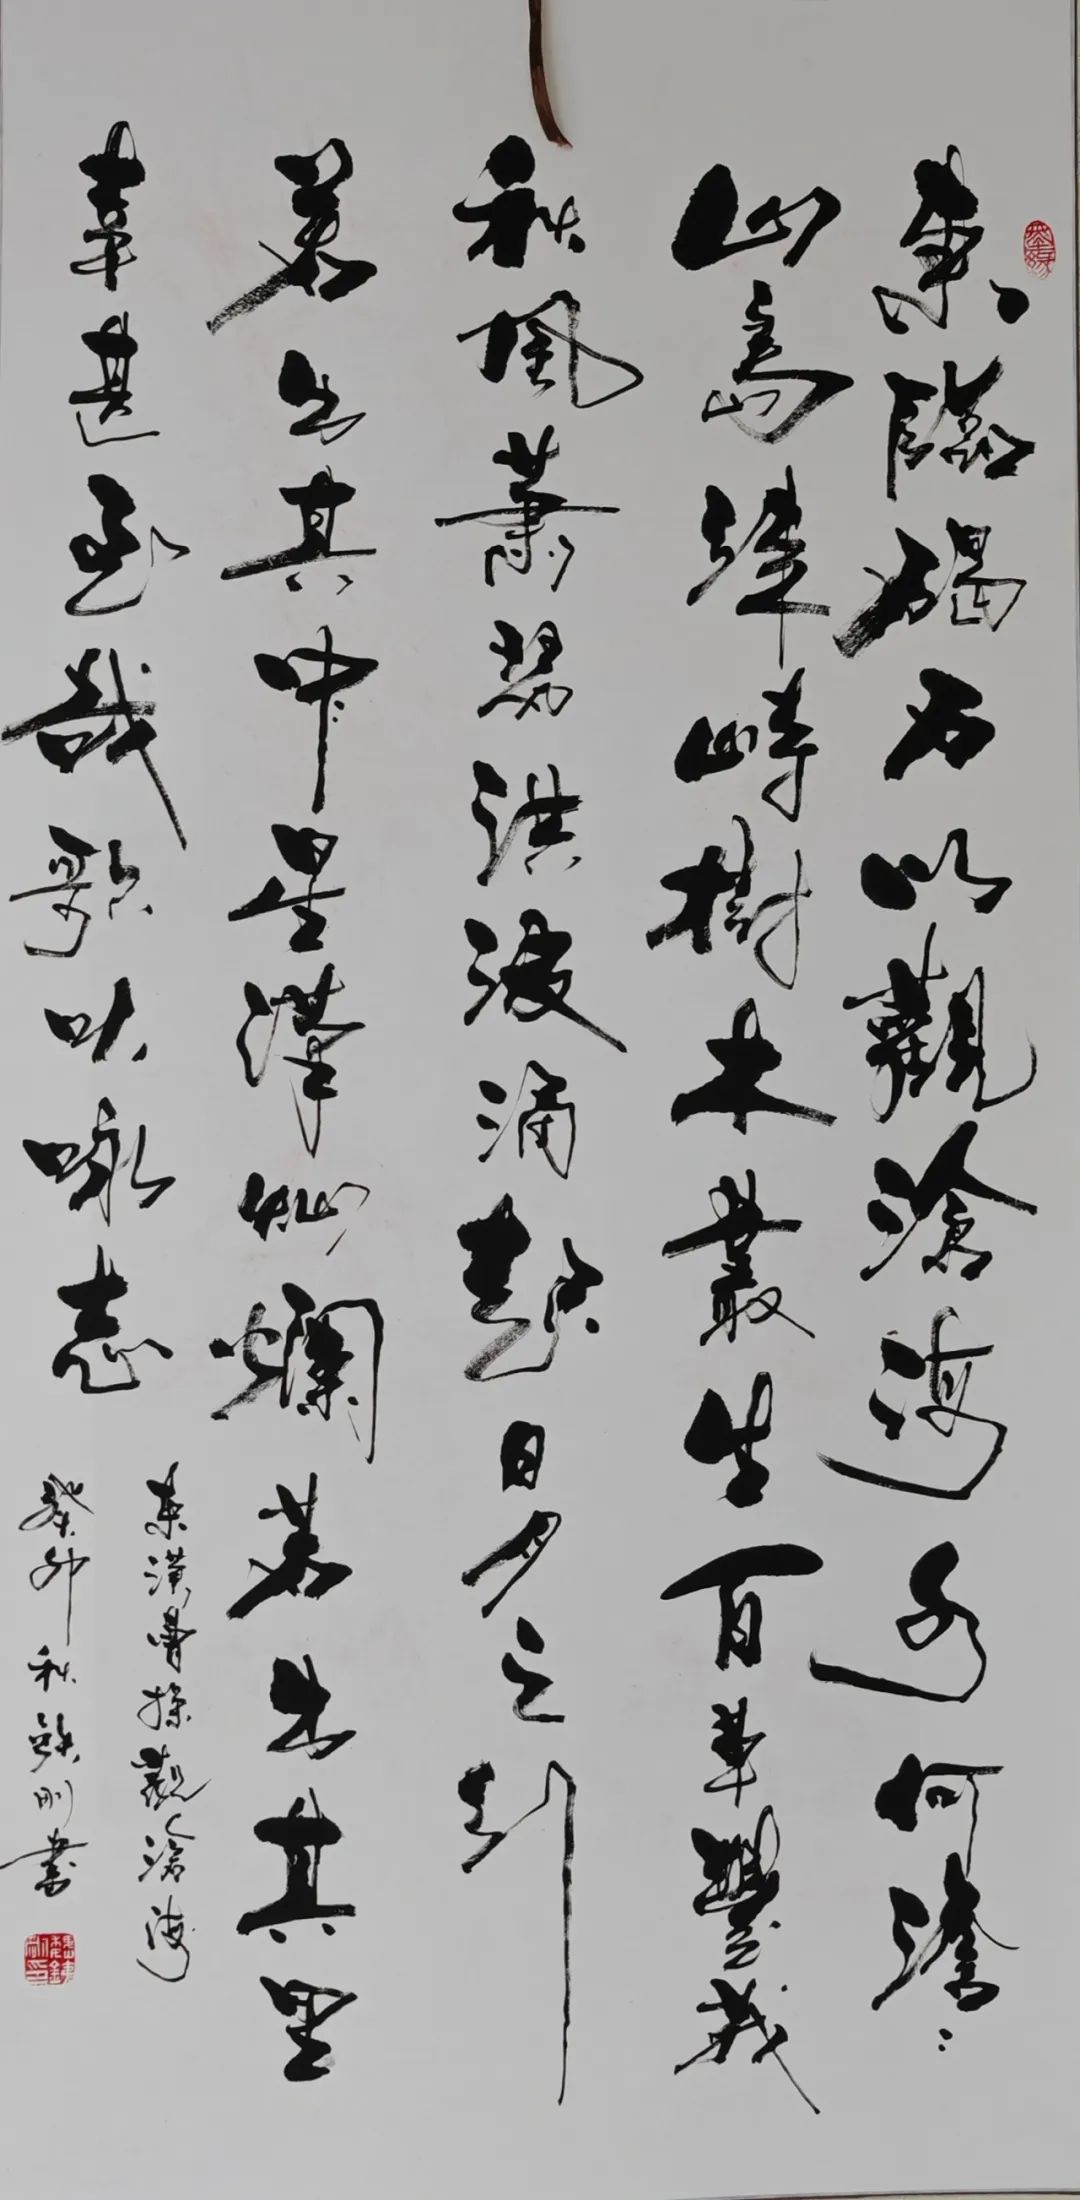 東臨碣石以觀滄海水何澹〻
山島竦峙樹木叢生百草豐茂
秋風蕭瑟洪波涌起日月之行
若出其中星漢灿爛若出其里
幸甚至哉歌以咏志
東漢曹操觀滄海
癸卯秋刚書